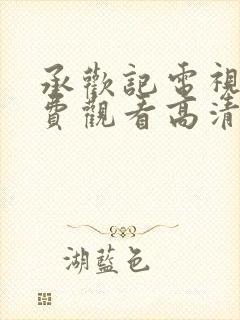 承歡記電視
費觀看高清
湖藍色